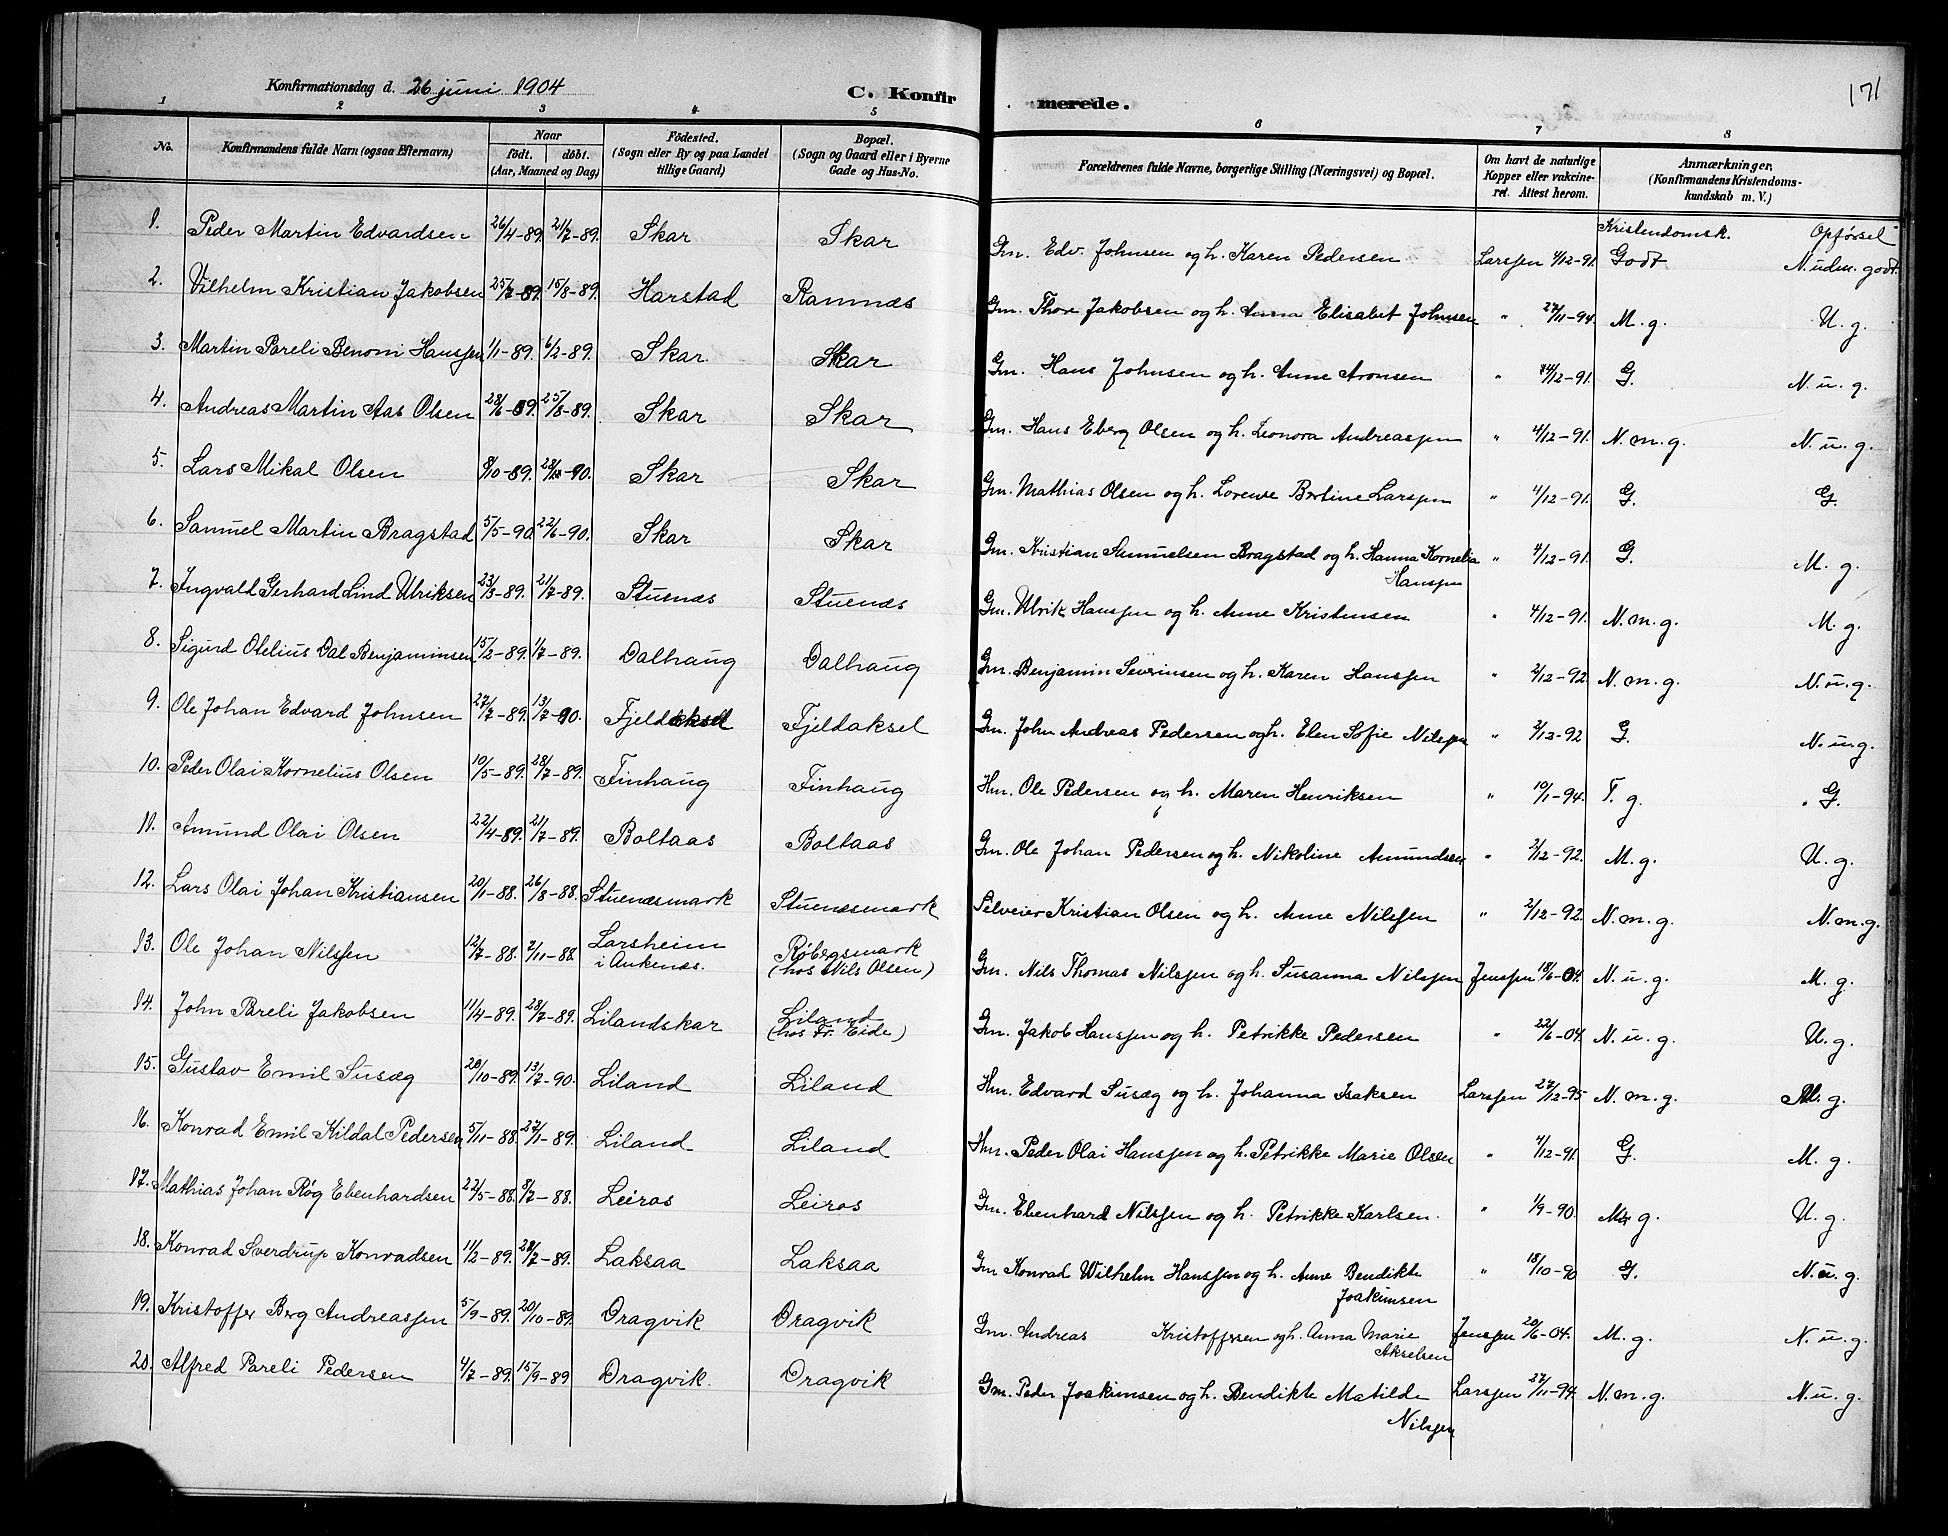 Konfirmationsdag d. 26 juni 1904
C. Konfirmerede.
171
1 2 3 4 5 6 7 8
No.
Konfirmandens fulde Navn (ogsaa Efternavn)
Naar
födt. döbt.
(Aar, Maaned og Dag)
Födested.
(Sogn eller By og paa Landet
tillige Gaard)
Bopæl.
(Sogn og Gaard eller i Byerne
Gade og Hus-No.
Forældrenes fulde Navne, borgerlige Stilling (Næringsvei) og Bopæl.
Om havt de naturlige
Kopper eller vakcine-
ret. Attest herom.
Anmærkninger,
(Konfirmandens Kristendoms-
kundskab m. V.)
Kristendomsk. Opførsel
1. Peder Martin Edvardsen 26/4-89. 21/7-89. Skar Skar Gm. Edv. Johnsen og h. Karen Pedersen Larssen 4/12-91. Godt N. udm. godt.
2. Vilhelm Kristian Jakobsen 25/7-89. 15/8-89. Harstad Ramnæs Gm. Thore Jakobsen og h. Anna Elisabet Johnsen " 27/11-94. M. g. U. g.
3. Martin Pareli Benoni Hanssen 1/1-89. 6/2-89. Skar Skar Gm. Hans Johnsen og h. Anne Aronsen " 4/12-91. G. N. u. g.
4. Andreas Martin Aas Olsen 28/6-89. 25/8-89. Skar Skar Gm. Hans Eberg Olsen og h. Leonora Andreassen " 4/12-91. N. m. g. N. u. g.
5. Lars Mikal Olsen 8/10-89. -90. Skar Skar Gm. Mathias Olsen og h. Lorense Bertine Larssen " 4/12-91. G. G.
6. Samuel Martin Bragstad 5/5-90 22/6-90. Skar Skar Gm. Kristian Samuelsen Bragstad og h. Hanna Kornelia " 4/12-91. G. M. g.
Hanssen
7. Ingvald Gerhard Lind Ulriksen 23/3-89. 21/7-89. Stuenæs Stuenæs Gm. Ulrik Hanssen og h. Anne Kristensen " 4/12-91. N. m. g. M. g.
8. Sigurd Otelius Dal Benjaminsen 15/2-89. 1/7-89. Dalhaug Dalhaug Gm. Benjamin Severinsen og h. Karen Hanssen " 2/12-92 N. m. g. N. u. g.
9. Ole Johan Edvard Johnsen 27/7-89. 13/7-90. Fjeldaksel Fjeldaksel Gm. John Andreas Pedersen og h. Elen Sofie Nilssen " 2/12-92 G. N. u. g.
10. Peder Olai Kornelius Olsen 10/5-89. 28/7-89. Finhaug Finhaug Hm. Ole Pedersen og h. Maren Henriksen " 19/1-94. T. g. G.
11. Amund Olai Olsen 22/4-89. 21/7-89. Boltaas Boltaas Gm. Ole Johan Pedersen og h. Nikoline Amundsen " 2/12-92. M. g. U. g.
12. Lars Olai Johan Kristiansen 20/1-88. 26/8-88. Stuenæsmark Stuenæsmark Selveier Kristian Olsen og h. Anne Nilssen " 2/12-92. N. m. g. N. m. g.
13. Ole Johan Nilssen 12/7-88. 2/11-88. Larsheim Røbergsmark Gm. Nils Thomas Nilssen og h. Susanna Nilssen Jenssen 18/6-04. N. u. g. M. g.
i Ankenæs. (hos Nils Olsen)
14. John Pareli Jakobsen 11/4-89. 28/7-89. Lilandskar Liland Gm. Jakob Hanssen og h. Petrikke Pedersen " 22/6-04. N. u. g. U. g.
(hos Fr. Eide)
15. Gustav Emil Susæg 20/10-89. 13/7-90. Liland Liland Hm. Edvard Susæg og h. Johanna Isaksen Larssen 27/12-95 N. m. g. M. g.
16. Konrad Emil Kildal Pedersen 5/11-88. 27/1-89. Liland Liland Hm. Peder Olai Hanssen og h. Petrikke Marie Olsen " 4/12-91. G. M. g.
17. Mathias Johan Røg Ebenhardsen 22/5-88. 8/7-88. Leiros Leiros Gm. Ebenhard Nilssen og h. Petrikke Karlsen. " 1/9-90. M. g. U. g.
18. Konrad Sverdrup Konradsen 11/2-89. 28/7-89. Laksaa Laksaa Gm Konrad Wilhelm Hanssen og h. Anne Bendikte " 18/10-90 G. N. u. g.
Joakimsen
19. Kristoffer Berg Andreassen 5/9-89. 20/10-89. Dragvik Dragvik Gm. Andreas Kristoffersen og h. Anna Marie Jenssen 20/6-04. M. g. N. u. g.
Akselsen
20. Alfred Pareli Pedersen 4/7-89. 15/9-89 Dragvik. Dragvik Gm. Peder Joakimsen og h. Bendikte Matilde Larssen 27/11-94. N. m. g. N. u. g.
Nilssen